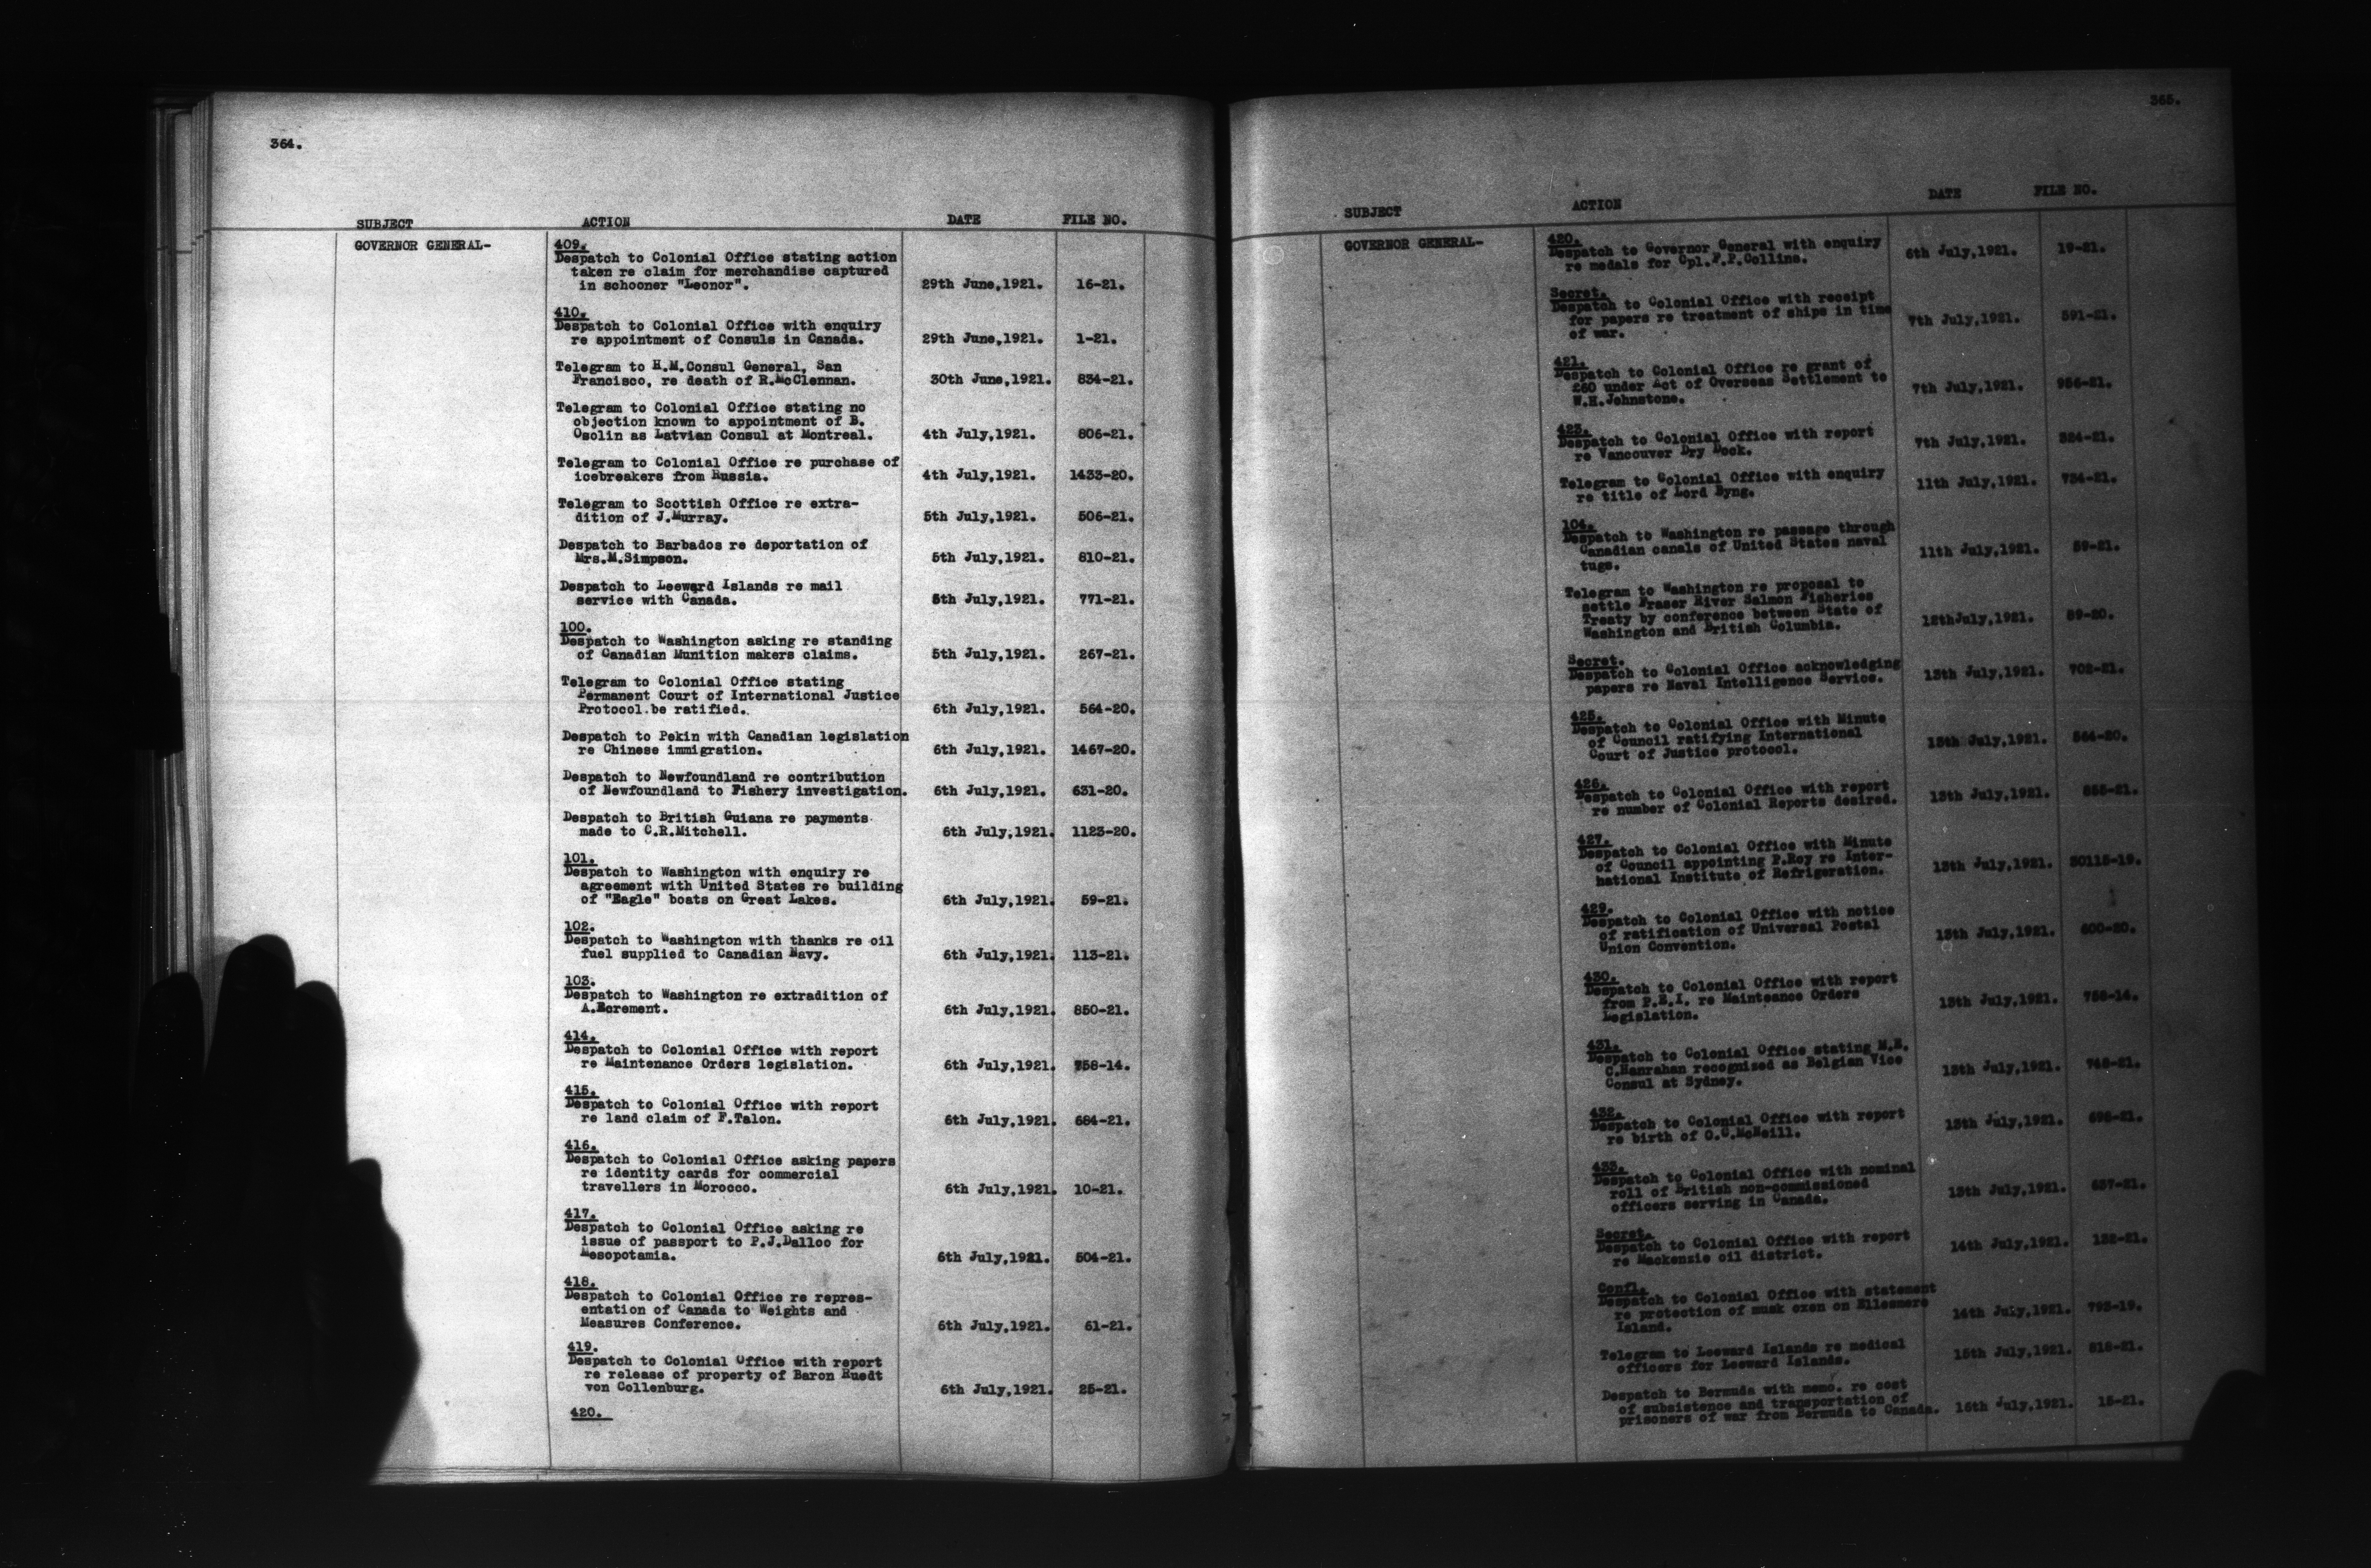 364.
SUBJECT ACTION DATE FILE NO.
GOVERNOR GENERAL- 409.
Despatch to Colonial Office stating action
taken re claim for merchandise captured
in schooner "Leonor". 29th June,1921. 16-21.
410.
Despatch to Colonial Office with enquiry
re appointment of Consuls in Canada. 29th June,1921. 1-21.
Telegram to H.M.Consul General, San
Francisco, re death of R.McClennan. 30th June,1921. 834-21.
Telegram to Colonial Office stating no
objection known to appointment of B.
Osolin as Latvian Consul at Montreal. 4th July,1921. 806-21.
Telegram to Colonial Office re purchase of
icebreakers from Russia. 4th July,1921. 1433-20.
Telegram to Scottish Office re extra-
dition of J.Murray. 5th July,1921. 506-21.
Despatch to Barbados re deportation of
Mrs.M.Simpson. 5th July,1921. 810-21.
Despatch to Leeward Islands re mail
service with Canada. 5th July,1921. 771-21.
100.
Despatch to Washington asking re standing
of Canadian Munition makers claims. 5th July,1921. 267-21.
Telegram to Colonial Office stating
Permanent Court of International Justice
Protocol.be ratified. 6th July,1921. 564-20.
Despatch to Pekin with Canadian legislation
re Chinese immigration. 6th July,1921. 1467-20.
Despatch to Newfoundland re contribution
of Newfoundland to Fishery investigation. 6th July,1921. 631-20.
Despatch to British Guiana re payments
made to C.R.Mitchell. 6th July,1921. 1123-20.
101.
Despatch to Washington with enquiry re
agreement with United States re building
of "Eagle" boats on Great Lakes. 6th July,1921. 59-21.
102.
Despatch to Washington with thanks re oil
fuel supplied to Canadian Navy. 6th July,1921. 113-21.
103.
Despatch to Washington re extradition of
A.Ecrement. 6th July,1921. 850-21.
414.
Despatch to Colonial Office with report
re Maintenance Orders legislation. 6th July,1921. 758-14.
415.
Despatch to Colonial Office with report
re land claim of F.Talon. 6th July,1921. 684-21.
416.
Despatch to Colonial Office asking papers
re identity cards for commercial
travellers in Morocco. 6th July,1921. 10-21.
417.
Despatch to Colonial Office asking re
issue of passport to P.J.Dalloo for
Mesopotamia. 6th July,1921. 504-21.
418.
Despatch to Colonial Office re repres-
entation of Canada to Weights and
Measures Conference. 6th July,1921. 61-21.
419.
Despatch to Colonial Office with report
re release of property of Baron Ruedt
von Collenburg. 6th July,1921. 25-21.
420.
365.
SUBJECT ACTION DATE FILE NO.
GOVERNOR GENERAL- 420.
Despatch to Governor General with enquiry
re medals for Cpl.F.P.Collins. 6th July,1921. 19-21.
Secret.
Despatch to Colonial Office with receipt
for papers re treatment of ships in time
of war. 7th July,1921. 591-21.
421.
Despatch to Colonial Office re grant of
£60 under Act of Overseas Settlement to
W.H.Johnstone. 7th July,1921. 956-21.
423.
Despatch to Colonial Office with report
re Vancouver Dry Dock. 7th July,1921. 324-21.
Telegram to Colonial Office with enquiry
re title of Lord Byng. 11th July,1921. 734-21.
104.
Despatch to Washington re passage through
Canadian canals of United States naval
tugs. 11th July,1921. 59-21.
Telegram to Washington re proposal to
settle Fraser River Salmon Fisheries
Treaty by conference between State of
Washington and British Columbia. 12thJuly,1921. 89-20.
Secret.
Despatch to Colonial Office acknowledging
papers re Naval Intelligence Service. 13th July,1921. 702-21.
425.
Despatch to Colonial Office with Minute
of Council ratifying International
Court of Justice protocol. 13th July,1921. 564-20.
426.
Despatch to Colonial Office with report
re number of Colonial Reports desired. 13th July,1921. 855-21.
427.
Despatch to Colonial Office with Minute
of Council appointing P.Roy re Inter-
national Institute of Refrigeration. 13th July,1921. 30115-19.
429.
Despatch to Colonial Office with notice
of ratification of Universal Postal
Union Convention. 13th July,1921. 600-20.
430.
Despatch to Colonial Office with report
from P.E.I. re Mainteance Orders
Legislation. 13th July,1921. 758-14.
431.
Despatch to Colonial Office stating M.E.
C.Hanrahan recognized as Belgian Vice
Consul at Sydney. 13th July,1921. 748-21.
432.
Despatch to Colonial Office with report
re birth of O.C.McNeill. 13th July,1921. 698-21.
433.
Despatch to Colonial Office with nominal
roll of British non-commissioned
officers serving in Canada. 13th July,1921. 637-21.
Secret.
Despatch to Colonial Office with report
re Mackenzie oil district. 14th July,1921. 132-21.
Confl.
Despatch to Colonial Office with statement
re protection of musk oxen on Ellesmere
Island. 14th July,1921. 793-19.
Telegram to Leeward Islands re medical
officers for Leeward Islands. 15th July,1921. 818-21.
Despatch to Bermuda with memo. re cost
of subsistence and transportation of
prisoners of war from Bermuda to Canada. 16th July,1921. 15-21.